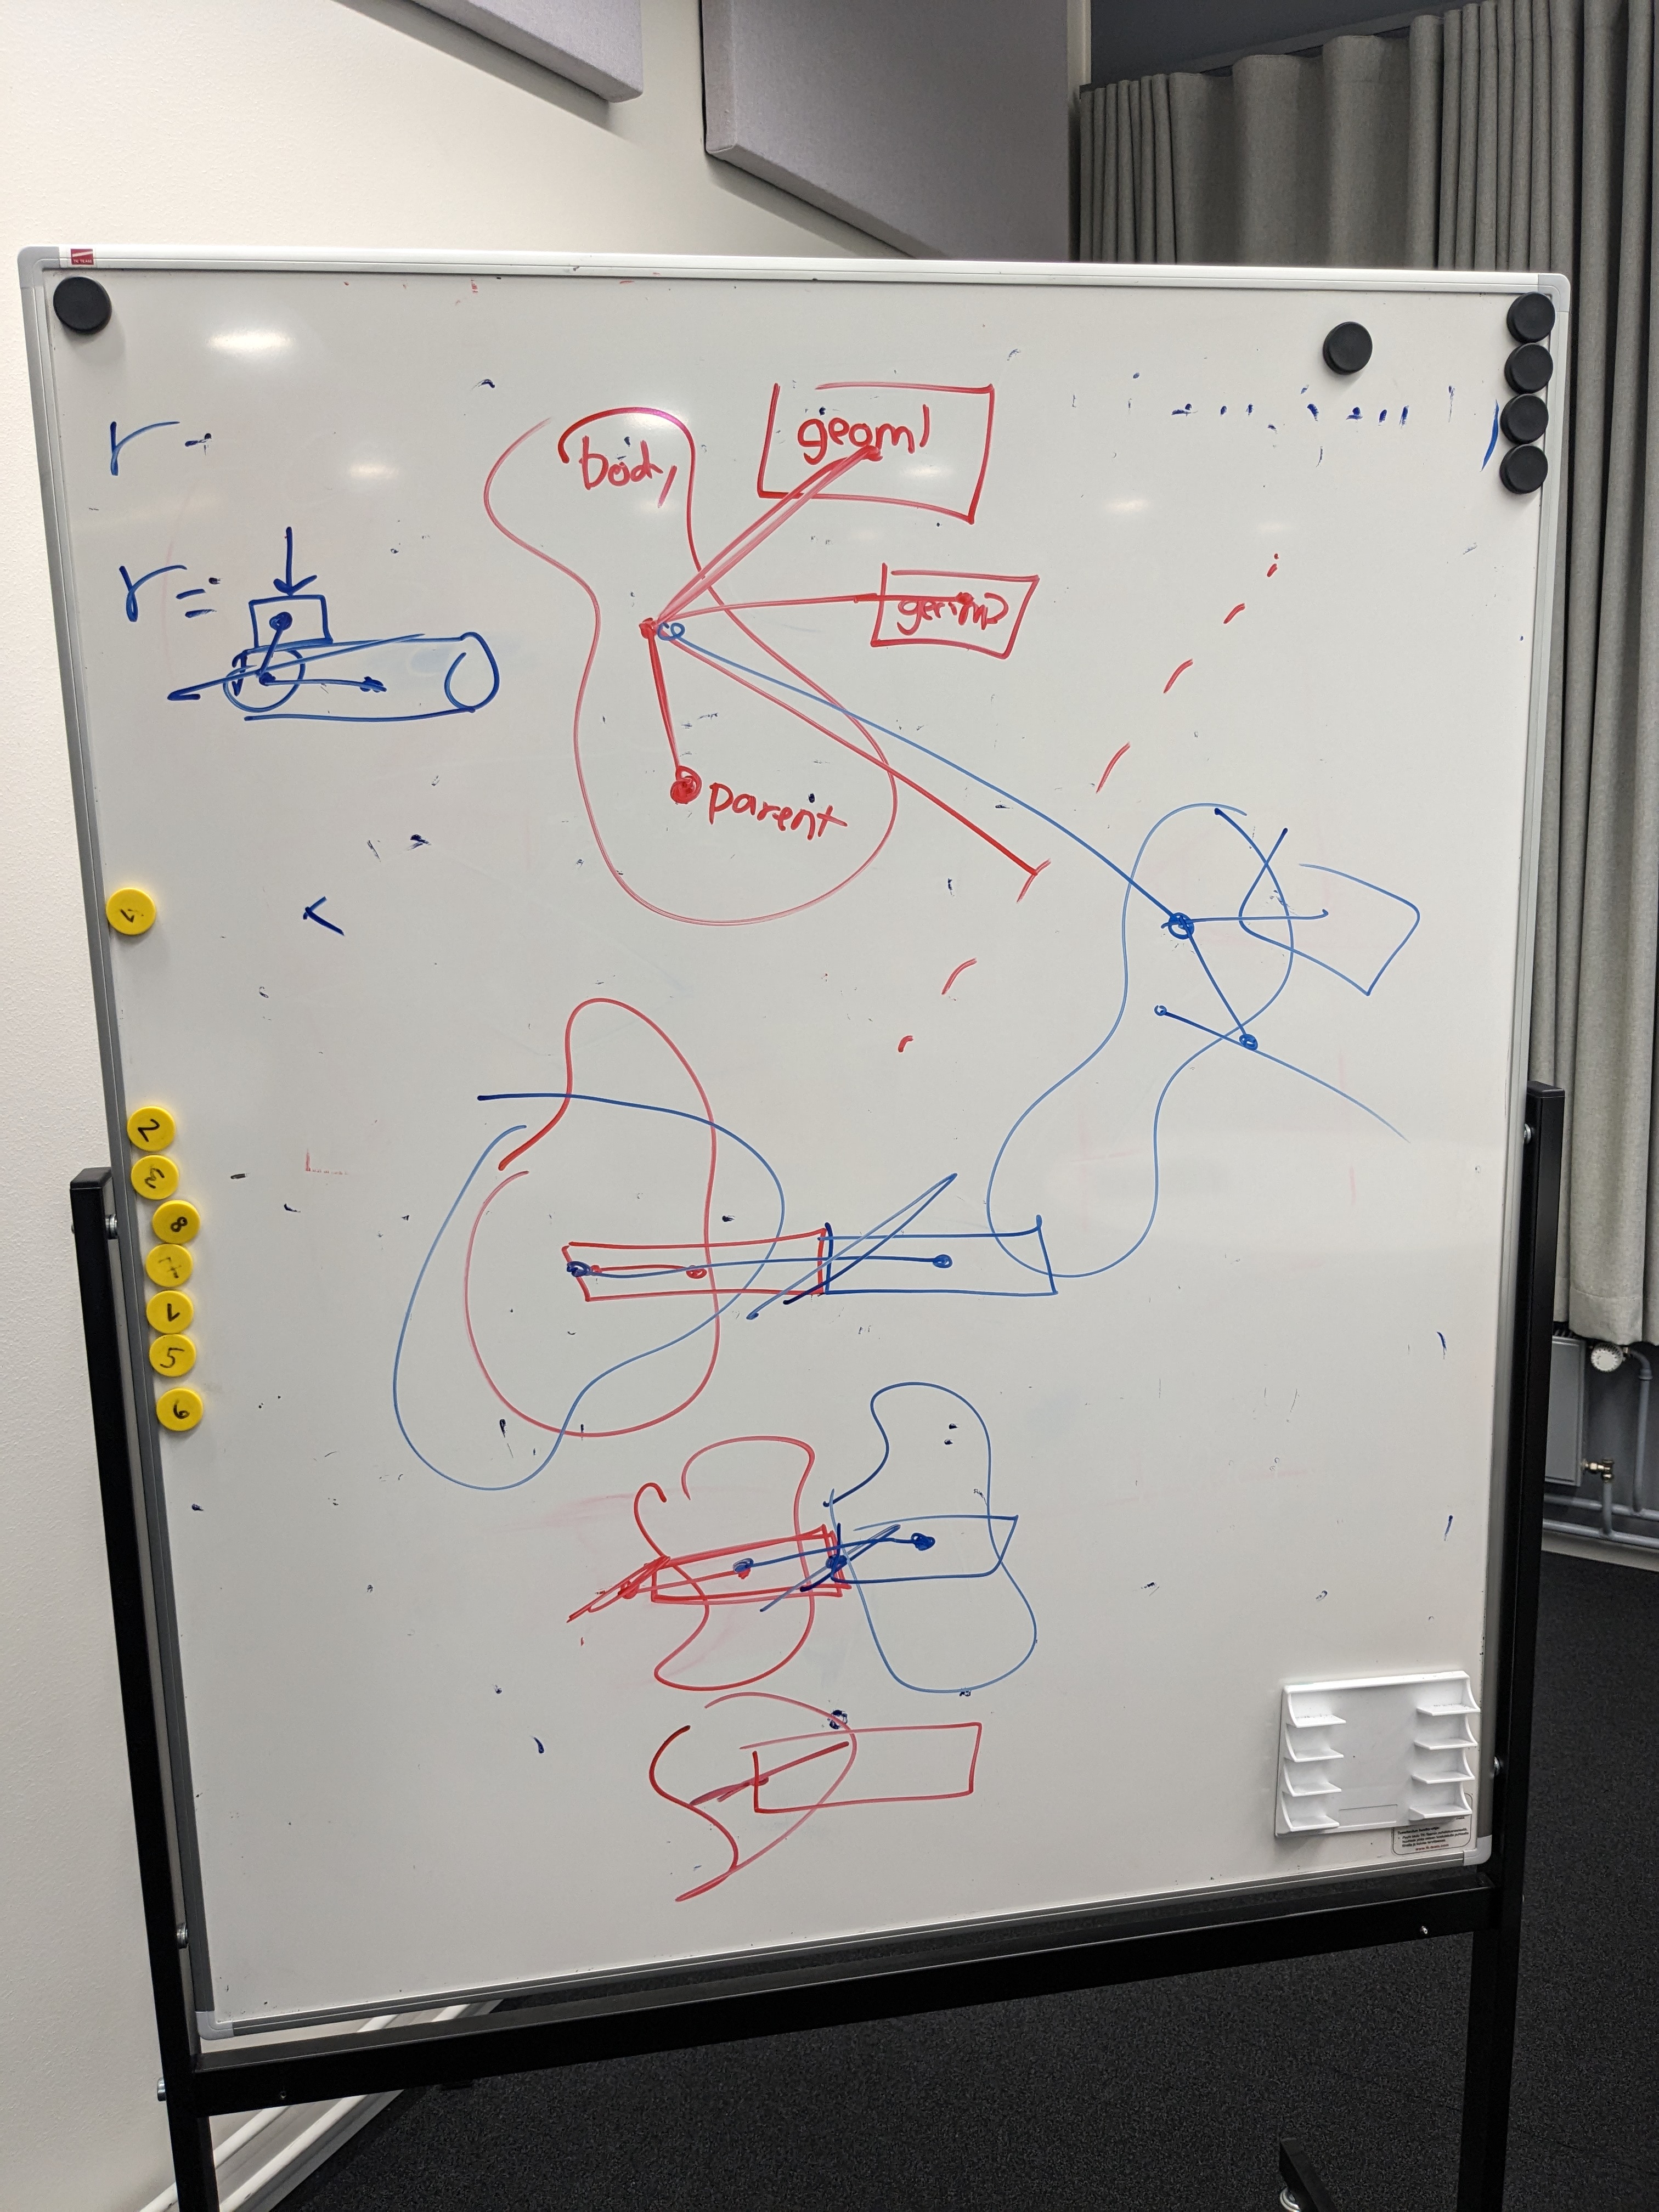 r -
body
geom1
r =
geom2
parent
2
3
8
5
6